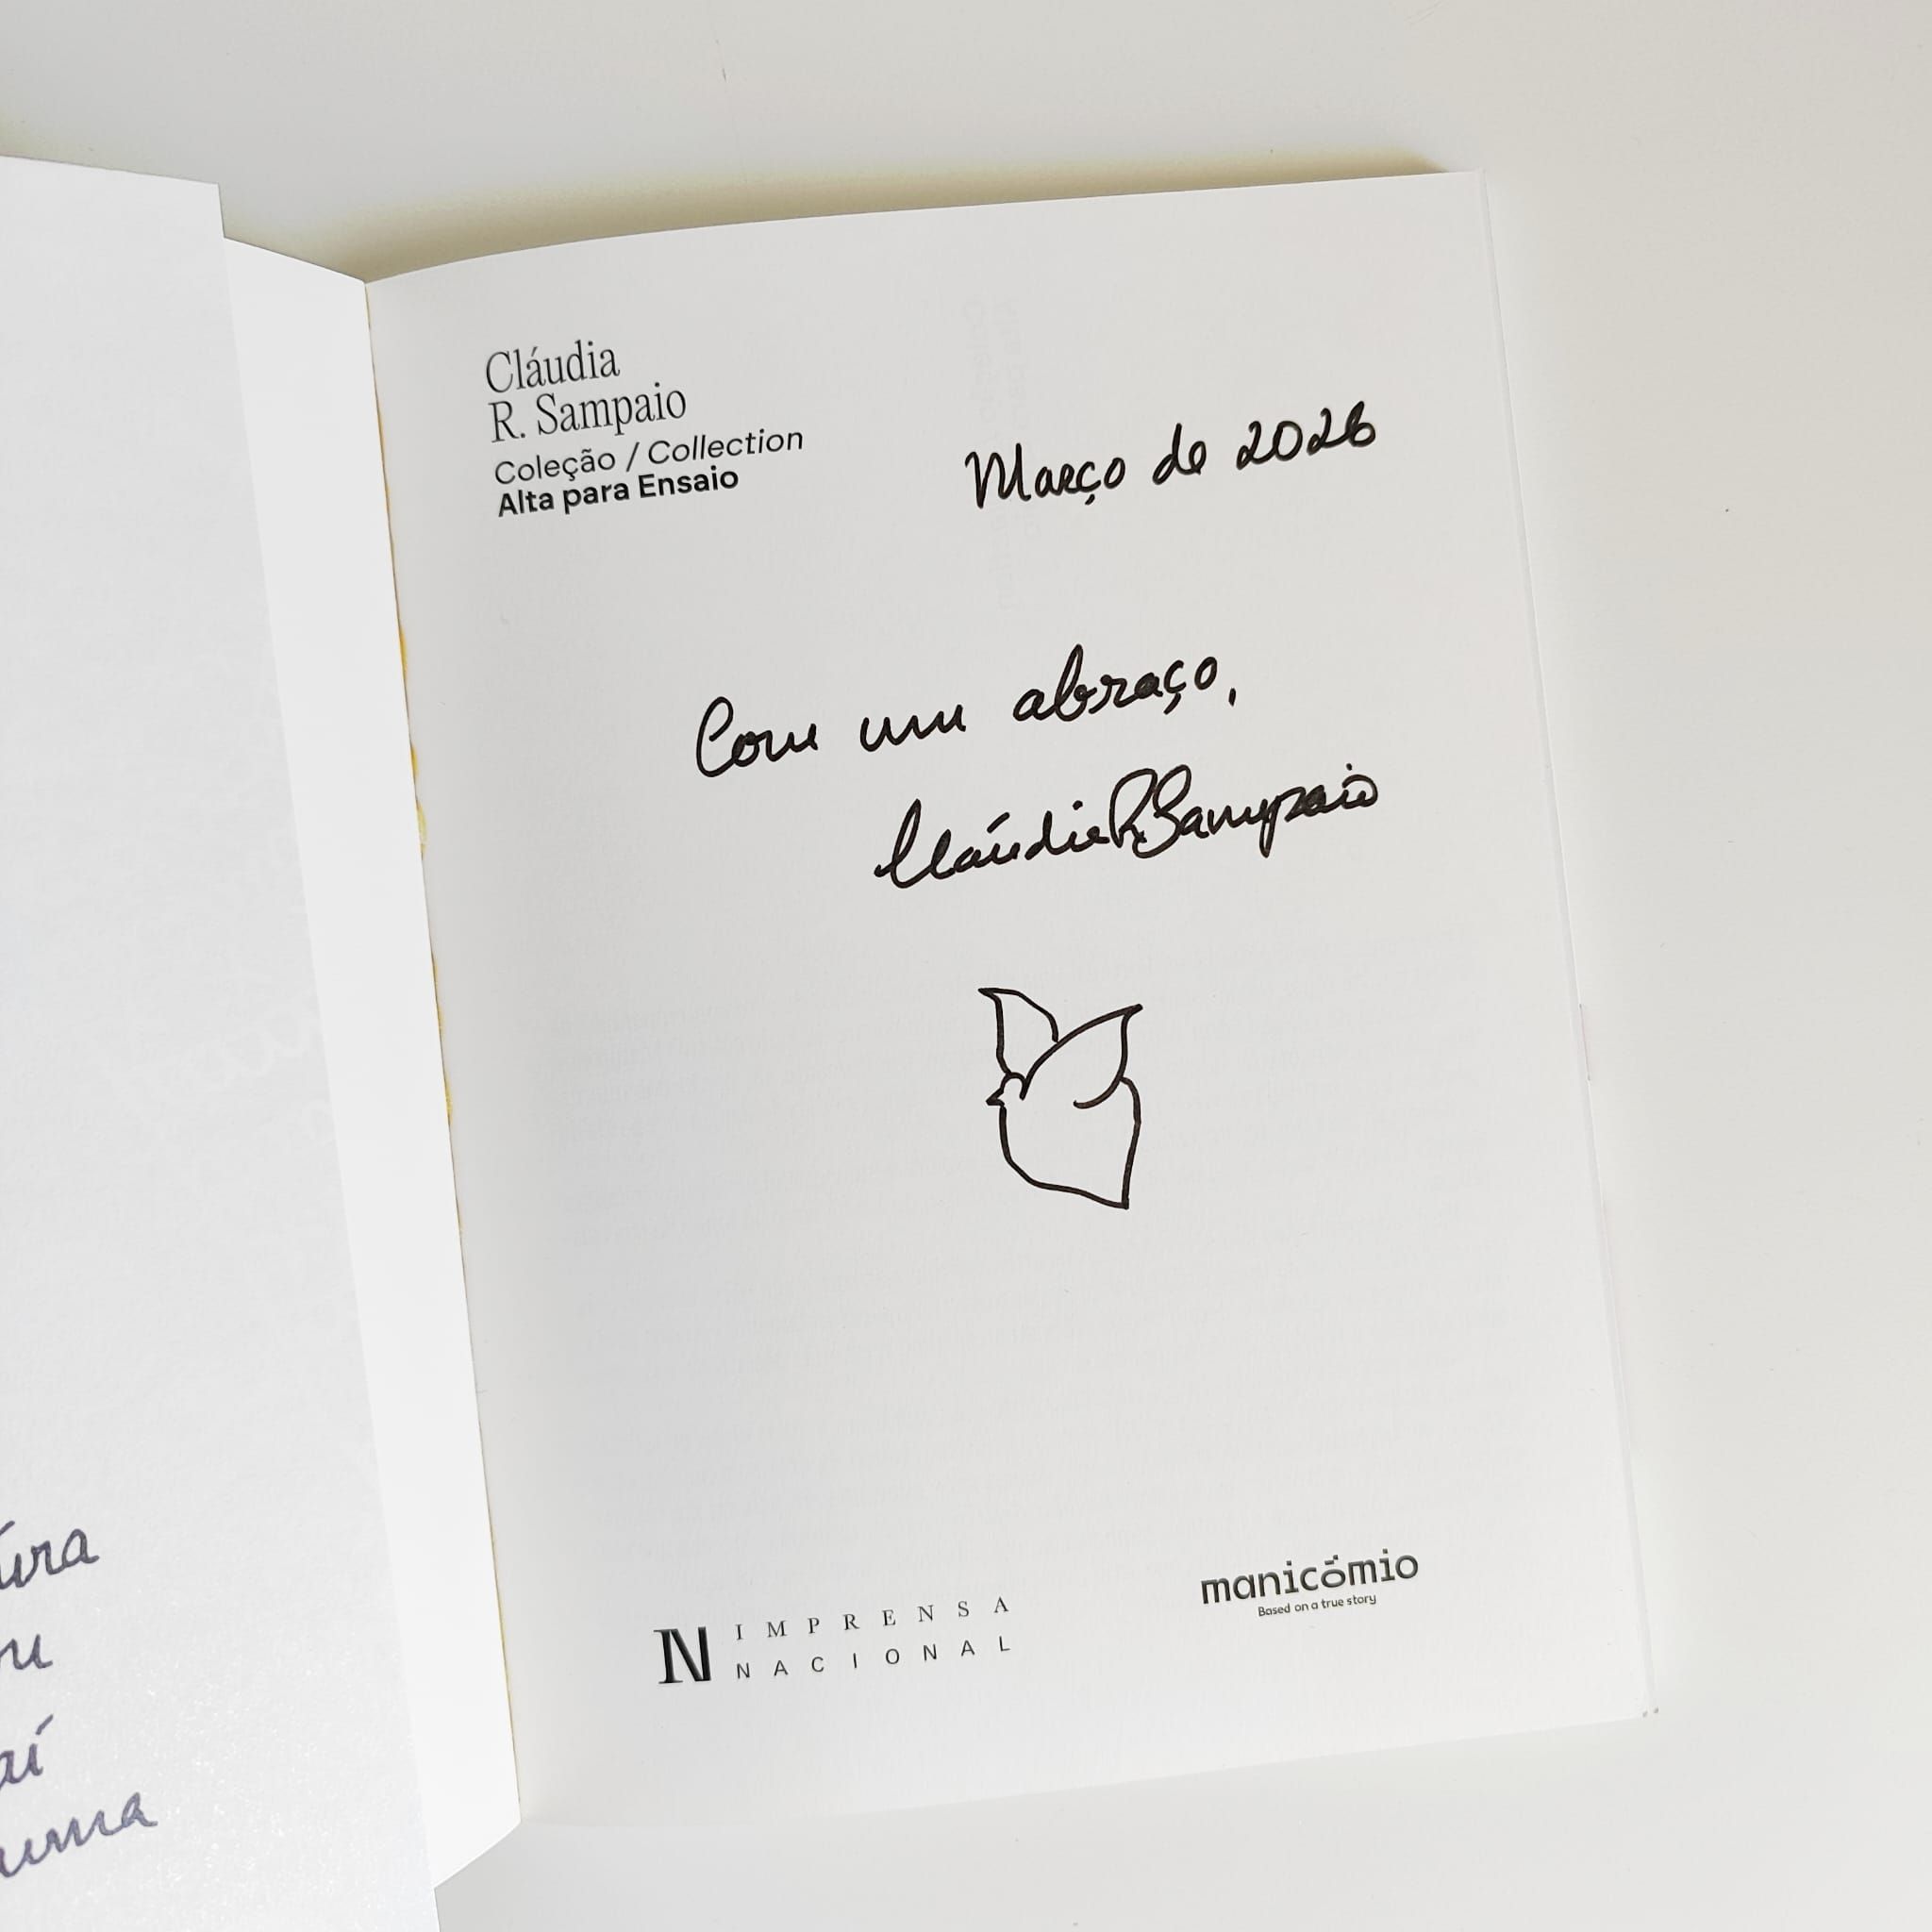 Cláudia
R. Sampaio
Coleção / Collection
Alta para Ensaio
Março de 2026
Com um abraço,
Cláudia R Sampaio
IN IMPRENSA
NACIONAL
manicómio
Based on a true story